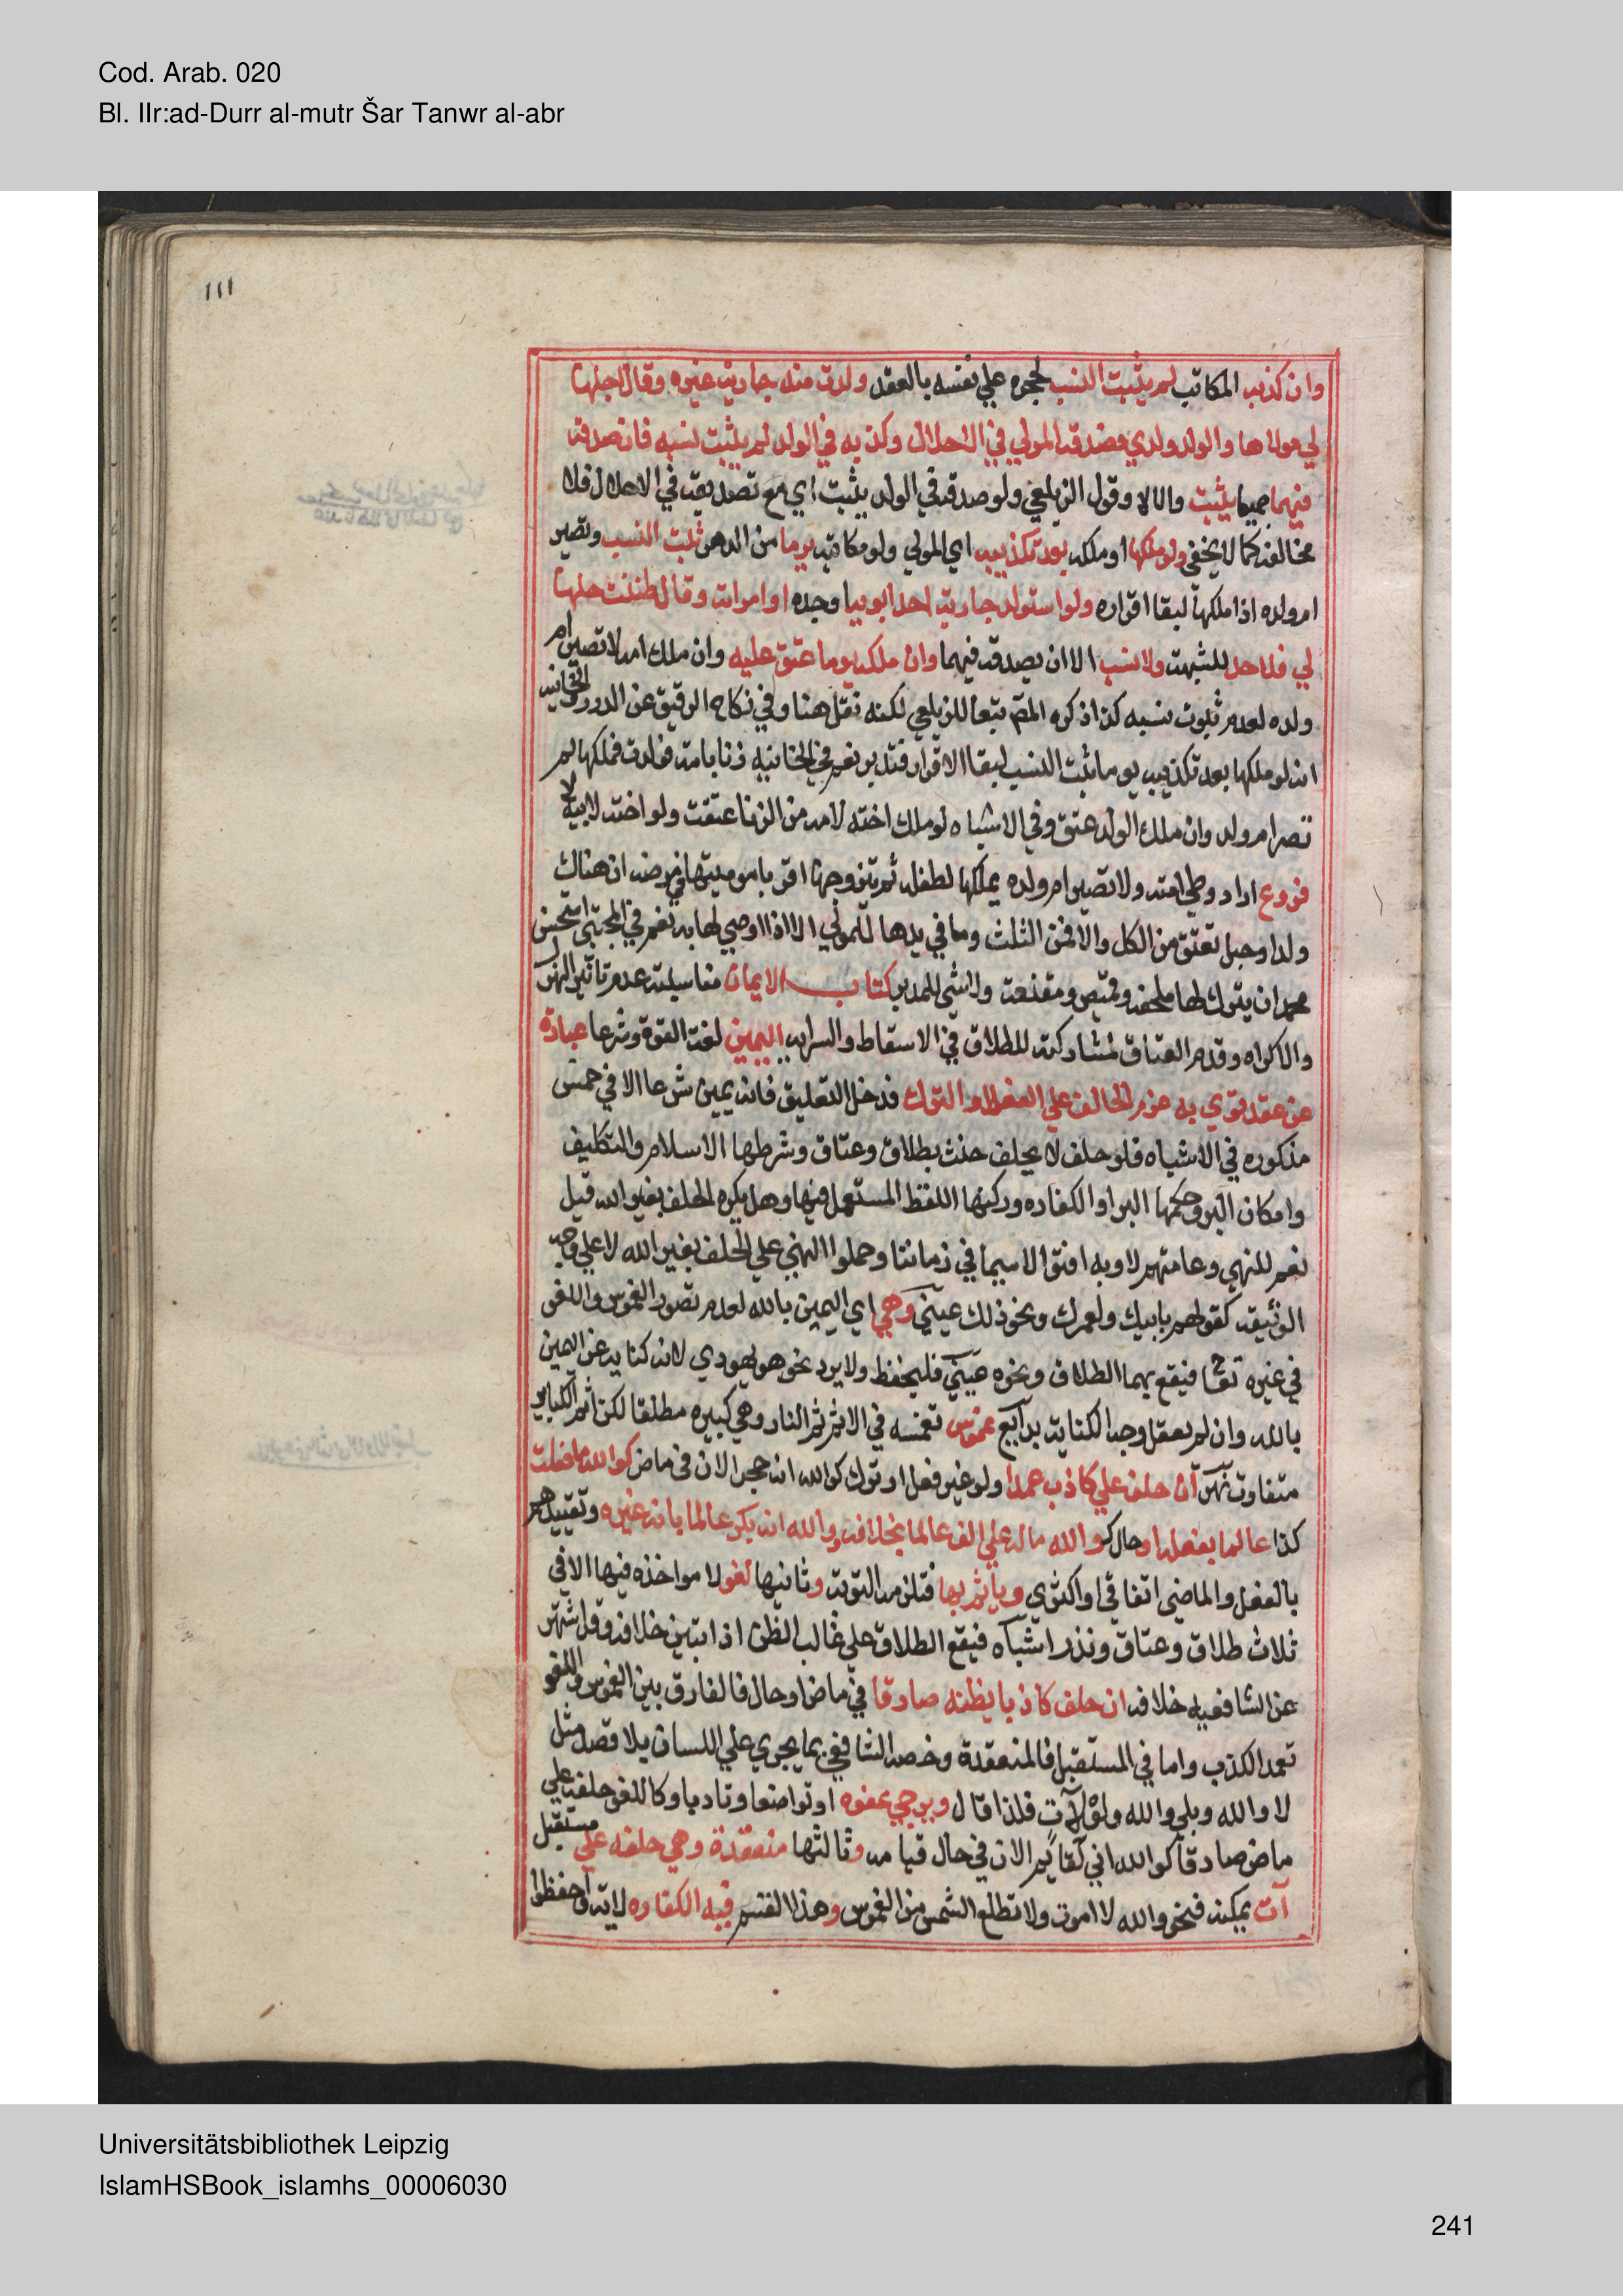 Cod. Arab. 020
Bl. IIr:ad-Durr al-mutr Šar Tanwr al-abr
١١١
وان كذبه المكاتب لم يثبت النسب لحجره علي نفسه بالعقد ولدت منه جارية غيره وقال احلها
لي مولاها والولد ولدي فصدقه المولي في الاحلال وكذبه في الولد لم يثبت نسبه فان صدقه
فيهما جميعا يثبت والا لا وقول الزيلعي ولو صدقه في الولد يثبت اي مع تصديقه في الاحلال فلا
مخالفه كما لا يخفي ولو ملكها او ملكه بعد تكذيبه اي المولي ولو مكاتبه يوما من الدهر ثبت النسب وتصير
ام ولده اذا ملكها لبقا اقراره ولو استولد جارية احد ابويه او جده او امراته وقال ظننت حلها
لي فلا حد للشبهة ولا نسب الا ان يصدقه فيهما وان ملكه يوما عتق عليه وان ملك امه لا تصير ام
ولده لعدم ثبوت نسبه كذا ذكره المص تبعا للزيلعي لكنه نقل هنا وفي نكاح الرقيق عن الدرر والخانيه
انه لو ملكها بعد تكذيبه يوما ثبت النسب لبقا الاقرار فتدبر نعم في الخانيه زنا بامة فولدت فملكها لم
تصر ام ولد وان ملك الولد عتق وفي الاشباه لو ملك اخته لامه من الزنا عتقت ولو اخته لابيه لا
فروع اراد وطي امته ولا تصير ام ولده يملكها لطفله ثم يتزوجها اقر باموميتها في مرضه ان هناك
ولد او حبل تعتق من الكل والا فمن الثلث وما في يدها للمولي الا اذا اوصي لها به نعم في المجتبي استحسن
محمد ان يترك لها ملحفه وقميص ومقنعة ولا شي للمدبر كتاب الايمان مناسبته عدم تاثير الهزل
والاكراه وقدم العتاق لمشاركته للطلاق في الاسقاط والسرايه اليمين لغة القوة وشرعا عبارة
عن عقد قوي به عزم الحالف علي الفعل او الترك فدخل التعليق فانه يمين شرعا الا في خمس
مذكوره في الاشباه فلو حلف لا يحلف حنث بطلاق وعتاق وشرطها الاسلام والتكليف
وامكان البر وحكمها البر او الكفاره وركنها اللفظ المستعمل فيها وهل يكره الحلف بغير الله قيل
نعم للنهي وعامتهم لا وبه افتوا لاسيما في زماننا وحملوا النهي علي الحلف بغير الله لا علي وجه
الوثيقة كقولهم بابيك ولعمرك ونحو ذلك عيني وهي اي اليمين بالله لعدم تصور الغموس واللغو
في غيره تعالي فيقع بهما الطلاق ونحوه عيني فليحفظ ولا يرد نحو هو يهودي لانه كناية عن اليمين
بالله وان لم يعقل وجه الكناية بدايع غموس تغمسه في الاثم ثم النار وهي كبيره مطلقا لكن اثم الكباير
متفاوت نهر ان حلف علي كاذب عمدا ولو غير فعل او ترك كوالله انه حجر الان في ماض كوالله ما فعلت
كذا عالما بفعله او حال كوالله ماله علي الف عالما بخلافه ووالله انه بكر عالما بانه غيره وتقييدهم
بالفعل والماضي اتفاقي او اكثري وياثم بها فتلزمه التوبة وثانيها لغو لا مواخذه فيها الا في
ثلاث طلاق وعتاق ونذر اشباه فيقع الطلاق علي غالب الظن اذا تبين خلافه وقد اشتهر
عن الشافعيه خلافه ان حلف كاذبا يظنه صادقا في ماض او حال فالفارق بين الغموس واللغو
تعمد الكذب واما في المستقبل فالمنعقدة وخصه الشافعي بما يجري علي اللسان بلا قصد مثل
لا والله وبلي والله ولو لآت فلذا قال ويرجي عفوه او تواضعا وتادبا وكاللغو حلفه علي
ماض صادقا كوالله اني لقايم الان في حال قيامه وثالثها منعقدة وهي حلفه علي مستقبل
آت يمكنه فنحو والله لا اموت ولا تطلع الشمس من الغموس وهذا القسم فيه الكفاره لاية واحفظوا
Universitätsbibliothek Leipzig
IslamHSBook_islamhs_00006030
241